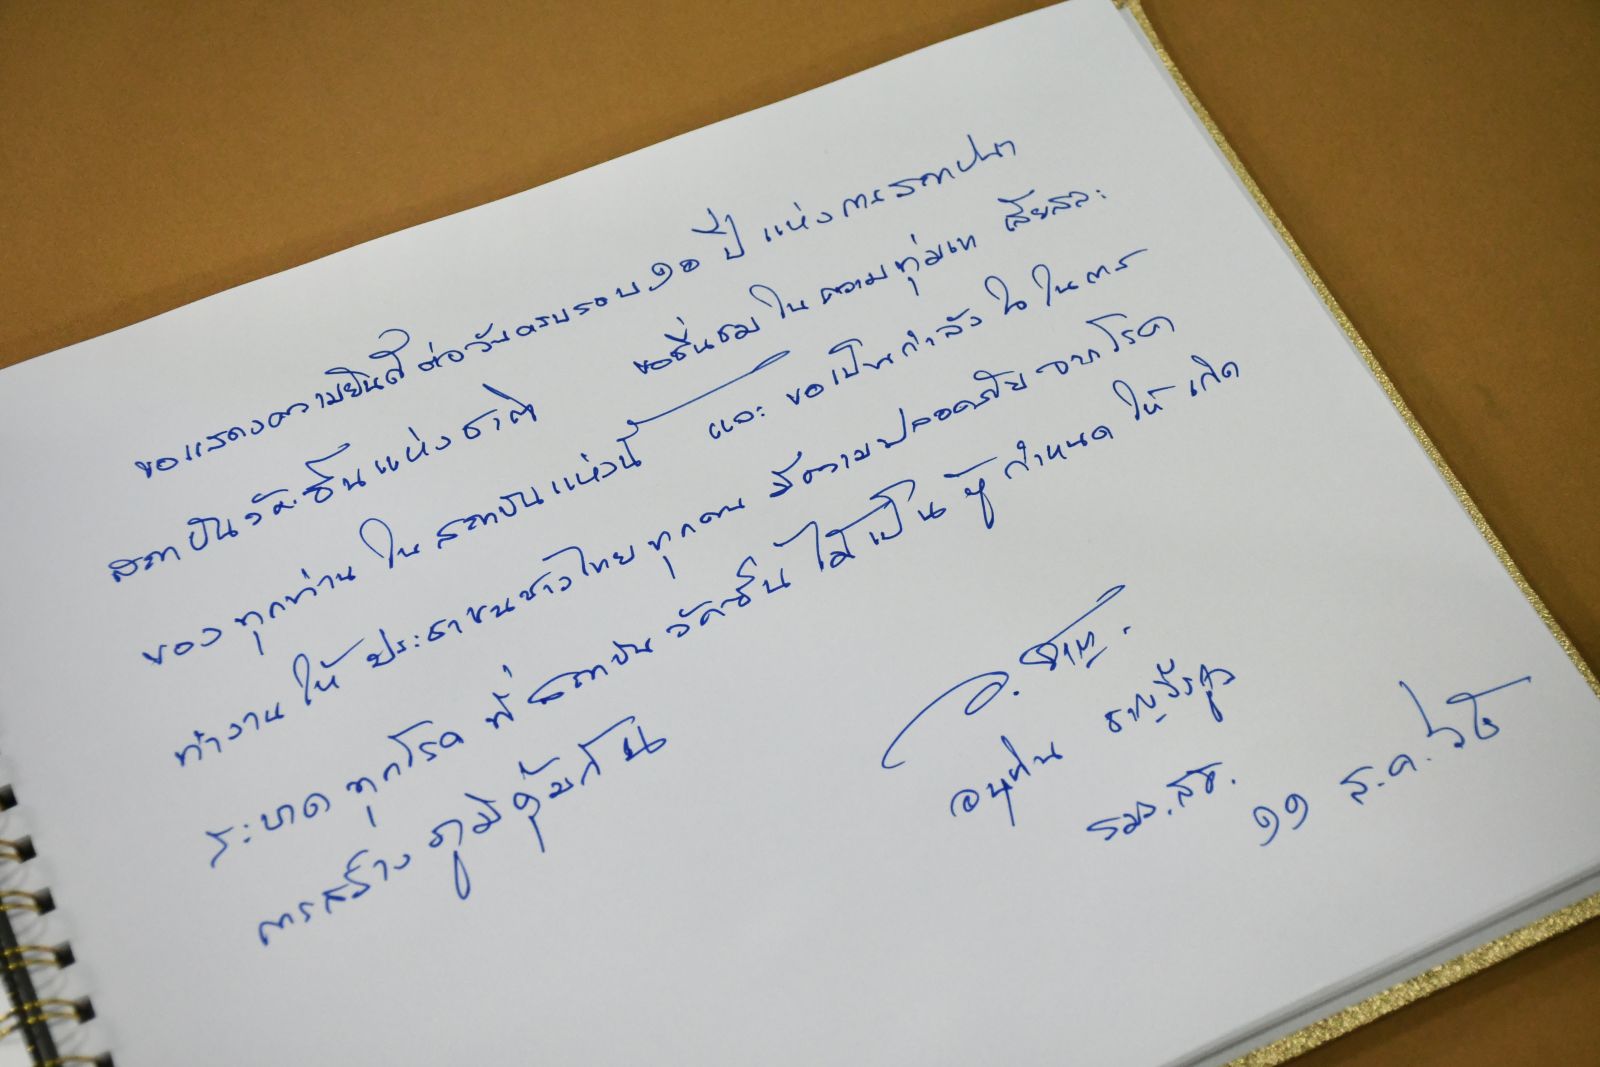 ขอแสดงความยินดี ต่อวันครบรอบ ๑๐ ปี แห่งการสถาปนา
สถาบันวัคซีนแห่งชาติ ขอชื่นชม ในความทุ่มเท เสียสละ
ของทุกท่าน ในสถาบันแห่งนี้ และ ขอเป็นกำลังใจในการ
ทำงาน ให้ประชาชนชาวไทย ทุกคน มีความปลอดภัย จากโรค
ระบาด ทุกโรค ที่สถาบันวัคซีน ได้เป็นผู้กำหนด ให้เกิด
การสร้างภูมิคุ้มกัน
อ. ชาญ.
อนุทิน ชาญวีรกูล
รมว.สธ.
๑๑ ส.ค. ๖๕